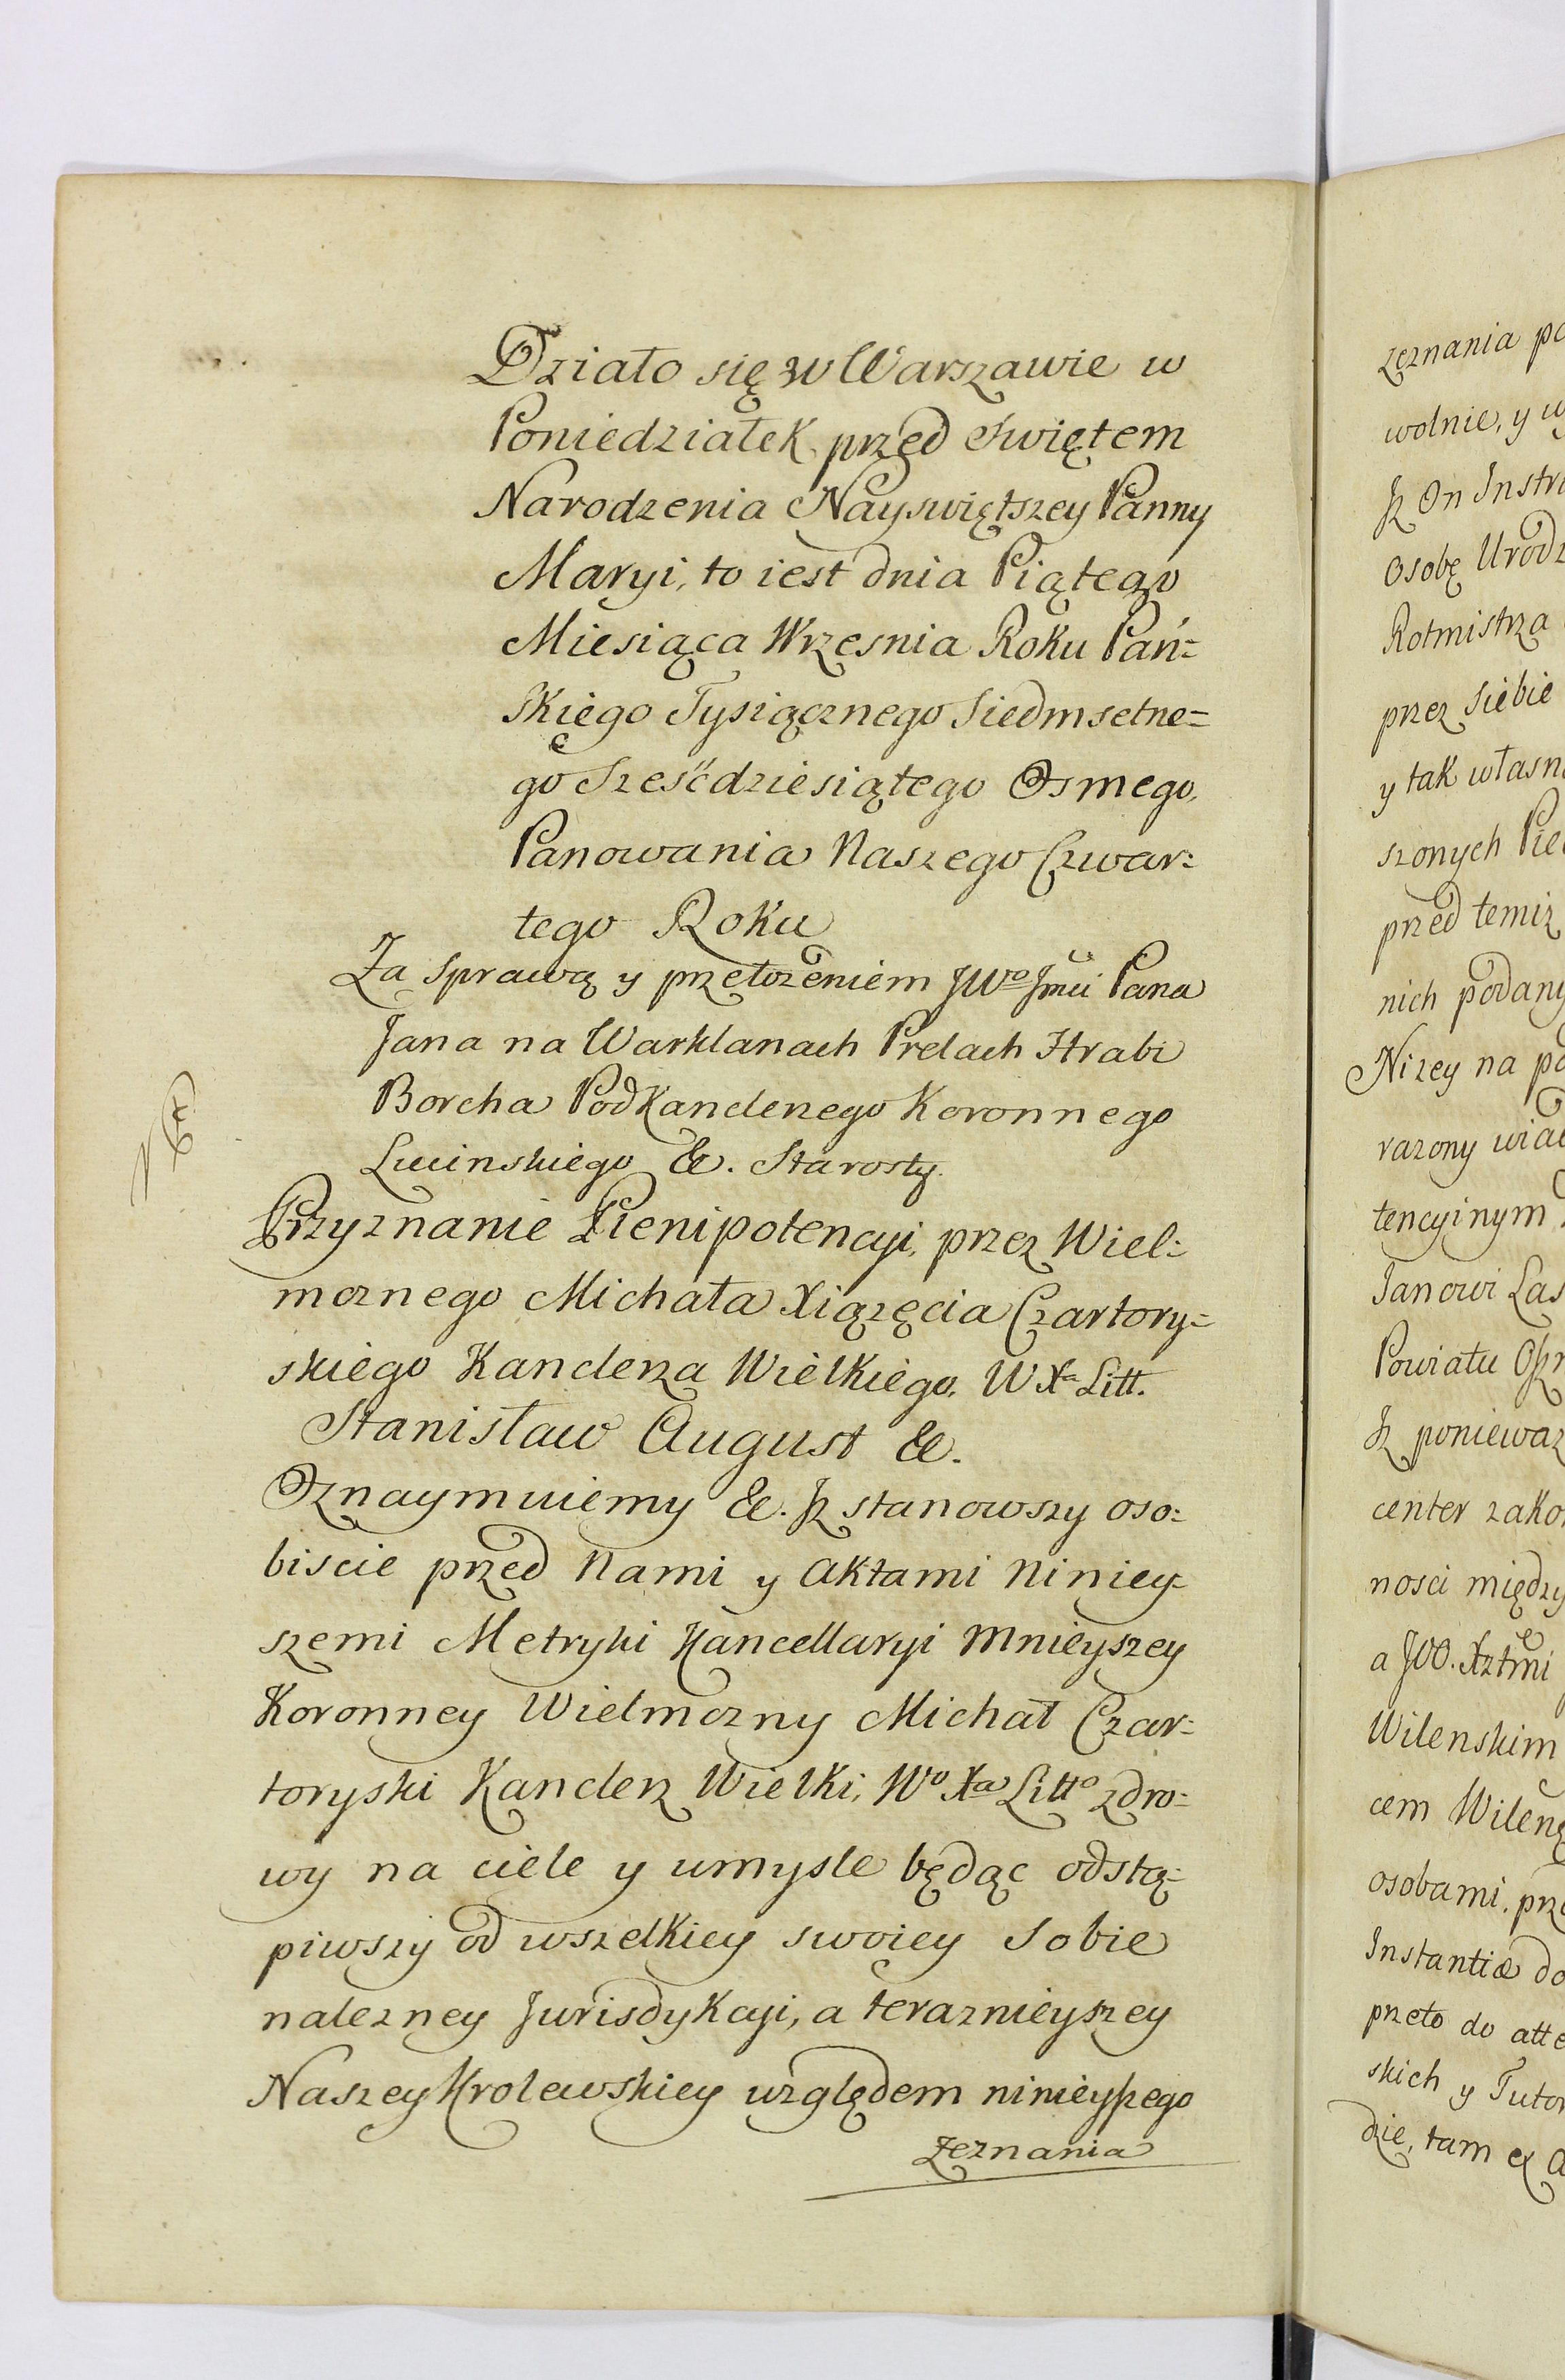 Działo się w Warszawie w
Poniedziałek przed Swiętem
Narodzenia Nayswiętszey Panny
Maryi, to iest dnia Piątego
Miesiąca Wrzesnia Roku Pań=
skiego Tysiącznego Siedmsetne=
go Sześćdziesiątego Osmego,
Panowania Naszego Czwar=
tego Roku
Za sprawą y przełożeniem JWo Jmci Pana
Jana na Warklanach Prelach Hrabi
Borcha Podkanclerzego Koronnego
Lucinskiego &c. Starosty.
Przyznanie Plenipotencyi, przez Wiel=
moznego Michała Xiązęcia Czartory=
skiego Kanclerza Wielkiego, W Xa Litt.
Stanisław August &c.
Oznaymuiemy &c. Jz stanowszy oso=
biscie przed Nami y Aktami Niniey=
szemi Metryki Kancellaryi Mnieyszey
Koronney Wielmozny Michał Czar=
toryski Kanclerz Wielki, Wo Xa Litto zdro=
wy na ciele y umysle będąc odstą=
piwszy od wszelkiey swoiey sobie
nalezney Jurisdykcyi, a teraznieyszey
Naszey Krolewskiey względem ninieyszego
zeznania
zeznania
wolnie, y
Jz On
Osobę
Rotmistrza
przez siebie
y tak
szonych
przed temiz
nich
Nizey na
razony
tencyinym
Janowi
Powiatu
Jz poniewaz
center
nosci między
a JOO.
Wilenskim
cem
osobami,
Instantiæ
przeto do
skich y
dzie, tam ex